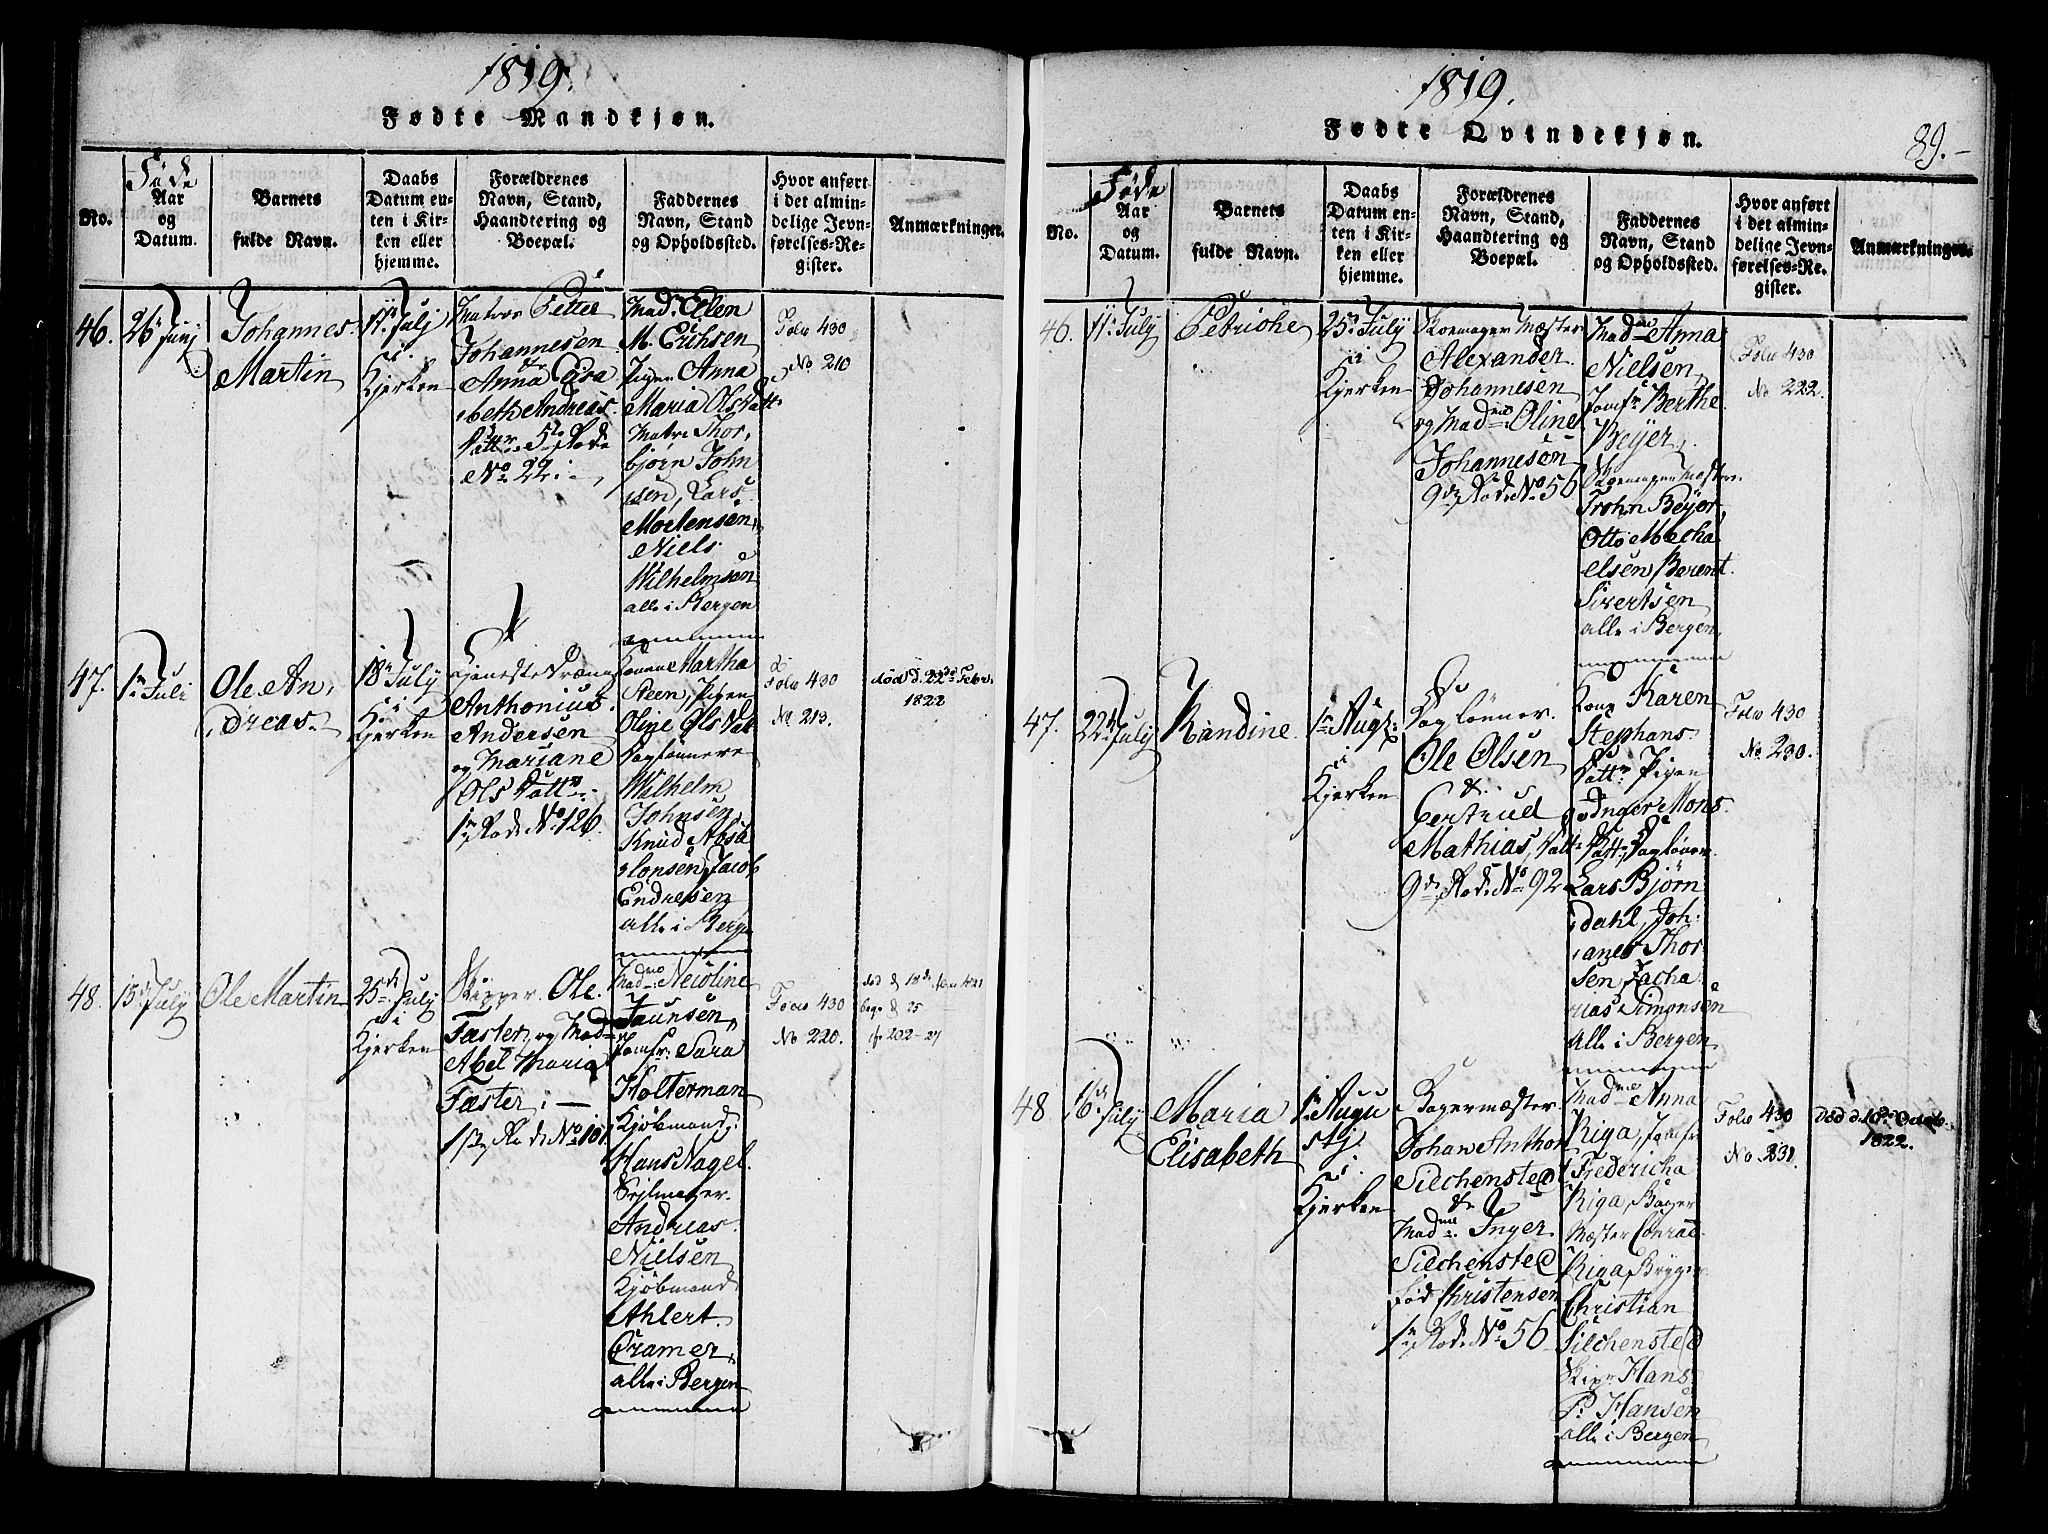 1819.
Fødte Mandkjøn.
No.
Føde
Aar
og
Datum.
Barnets
fulde Navn.
Daabs
Datum en-
ten i Kir-
ken eller
hjemme.
Forældrenes
Navn, Stand,
Haandtering og
Boepæl.
Faddernes
Navn, Stand
og Opholdssted.
Hvor anført
i det almin-
delige Jevn-
førelses-Re-
gister.
Anmærkninger.
46.
26 Junj
Johannes
Martin
11 Julj
i
Kjerken
Matros Petter
Johannesen
Anna Elisa
beth Andreas
Datter 5te Rode
No 22
Mad. Elen
M. Erihsen
Pigen Anna
Maria Olsdatt
Matr. Thor,
bjørn John
sen, Lars
Mortensen,
Niels
Wilhelmsen
alle i Bergen
Folio 430
No 210
47.
1 Juli
Ole An,
dreas
18 July
i
Kjerken
Tjeneste Dræng
Anthonius
Andersen
og Mariane
Ols Datt
1 Rode No 126.
Konen Martha
Steen, Pigen
Oline Ols Dat
Daglønnere
Wilhelm
Johnsen,
Knud Absa
lonsen, Jacob
Endresen
alle i Bergen
Folio 430
No 213.
død d. 22de Febr.
1822
48.
15 July
Ole Martin
25 July
i
Kjerken
Skipper Ole
Faster, og Mad
Abel Maria
Faster
1ste Rode No 101
Mad. Neioline
Jaunsen,
Jomfr: Sara
Holterman
Kjøbmand:
Hans Nagel.
Sejlmager
Andreas
Nielsen
Kjøbmand
Ahlert
Cramer,
alle i Bergen
Folio 430
No 220.
død d 18de
begr d 25
1819.
Fødte Qvindekjøn.
89.
No.
Føde
Aar
og
Datum.
Barnets
fulde Navn.
Daabs
Datum en-
ten i Kir-
ken eller
hjemme.
Forældrenes
Navn, Stand,
Haandtering og
Boepæl.
Faddernes
Navn, Stand
og Opholdssted.
Hvor anført
i det almin-
delige Jevn-
førelses-Re-
gister.
Anmærkninger.
46.
11 July
Petriche
25 July
i
Kjerken
Skomager Mæster
Alexander
Johannesen
og Mad. Oline
Johannesen
9de Rode No 56
Mad. Anna
Nielsen,
Jomfr Berthe
Beyer,
Skomager Mæstere
Trohn Beyer,
Otto Micha
elsen Berent
Sivertsen
alle i Bergen.
Folio 430
No 222.
47.
22 July
Randine
1 Aug:
i
Kjerken
Daglønner
Ole Olsen
&
Gertrud
Mathias Datt
9de Rode No 92
Kone Karen
Stephans
Datt: Pigen
Inger Mons
Datt: Dagløner
Lars Bjørn
dahl, Joh:
anes Thor
sen, Zacha
rias Simonsen
alle i Bergen
Folio 430
No 230.
48
16 July
Maria
Elisabeth
1 Augu
stj
i
Kjerken
Bagermæster
Johan Anthon
Silchensted
&
Mad. Inger
Silchensted
fød Christensen
1 Rode No 56
Mad. Anna
Riga, Jomfr
Fredericha
Riga, Bager
Mæster Conrad
Riga, Brygger
Christian
Silchensted
Skipr Hans
P. Hansen
alle i Bergen
Folio 430
No 231.
Død d 18de Octob.
1822.